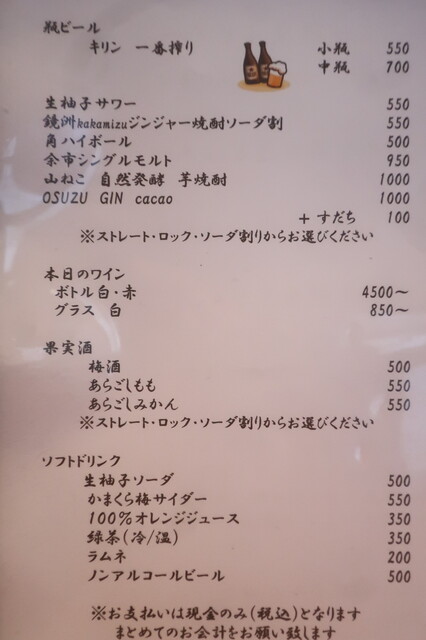 瓶ビール
キリン 一番搾り 小瓶 550
中瓶 700
生柚子サワー 550
鏡洲kakamizuジンジャー焼酎ソーダ割 550
角ハイボール 500
余市シングルモルト 950
山ねこ 自然発酵 芋焼酎 1000
OSUZU GIN cacao 1000
+ すだち 100
※ストレート・ロック・ソーダ割りからお選びください
本日のワイン
ボトル 白・赤 4500〜
グラス 白 850〜
果実酒
梅酒 500
あらごしもも 550
あらごしみかん 550
※ストレート・ロック・ソーダ割りからお選びください
ソフトドリンク
生柚子ソーダ 500
かまくら梅サイダー 550
100%オレンジジュース 350
緑茶(冷/温) 350
ラムネ 200
ノンアルコールビール 500
※お支払いは現金のみ(税込)となります
まとめてのお会計をお願い致します